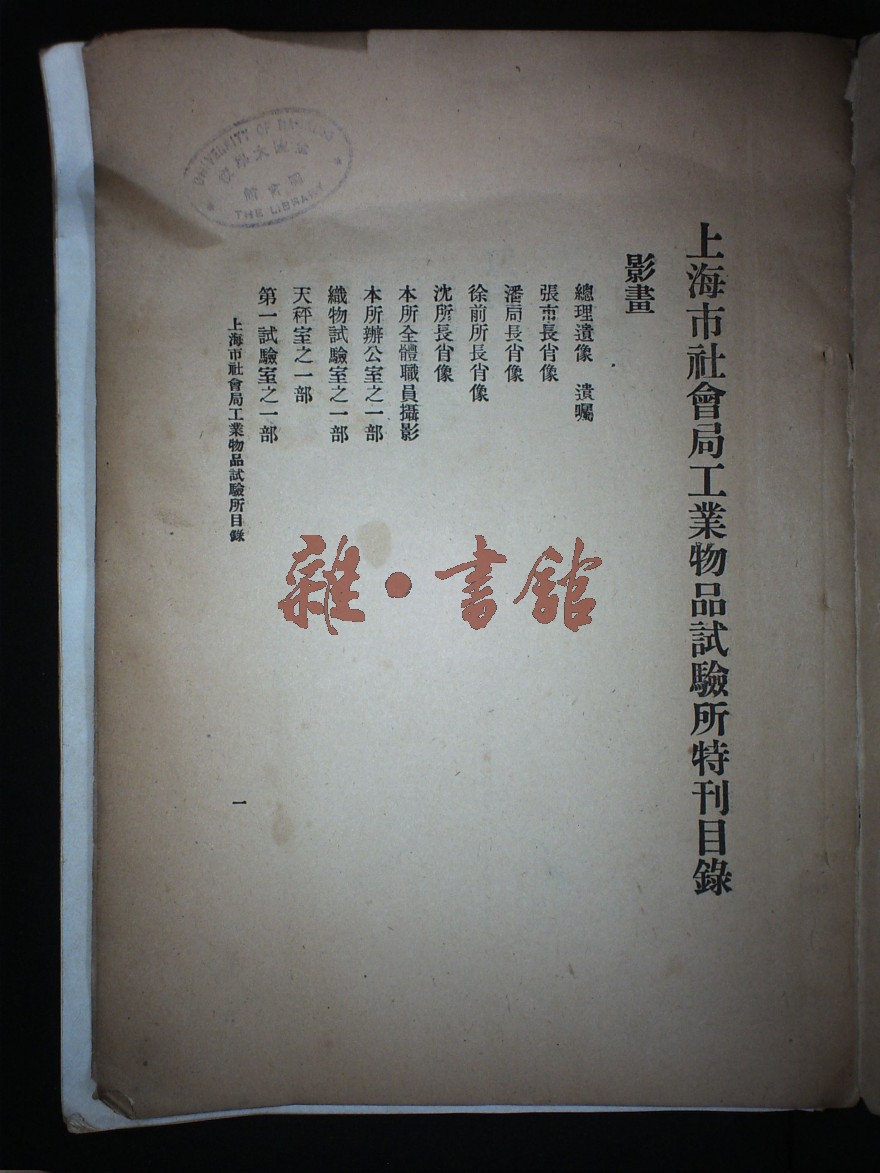 上海市社會局工業物品試驗所特刊目錄
影畫
總理遺像　遺囑
張市長肖像
潘局長肖像
徐前所長肖像
沈所長肖像
本所全體職員攝影
本所辦公室之一部
織物試驗室之一部
天秤室之一部
第一試驗室之一部
上海市社會局工業物品試驗所目錄
一
雜·書館
UNIVERSITY OF
THE LIBRARY